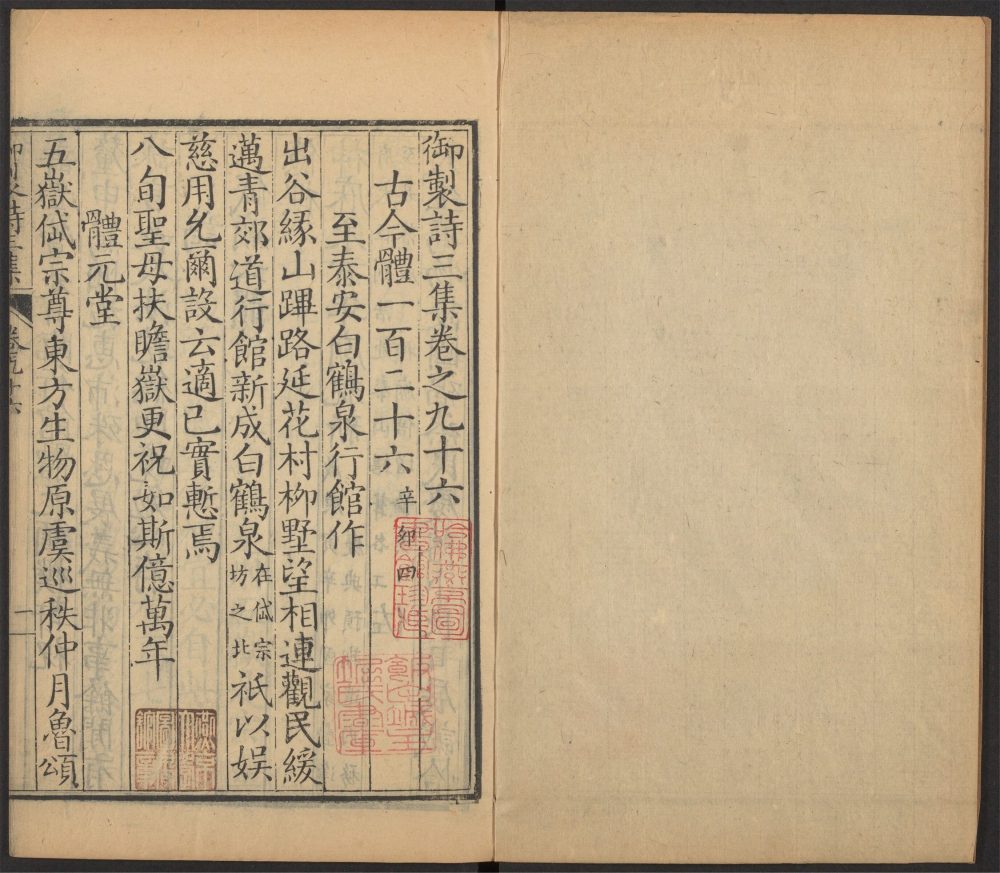 御製詩三集卷之九十六
古今體一百二十六 辛卯四
至泰安白鶴泉行館作
出谷緣山蹕路延花村柳墅望相連觀民緩
邁青郊道行館新成白鶴泉在岱宗坊之北祇以娛
慈用允爾設云適己實慙焉
八旬聖母扶瞻嶽更祝如斯億萬年
體元堂
五嶽岱宗尊東方生物原虞巡秩仲月魯頌